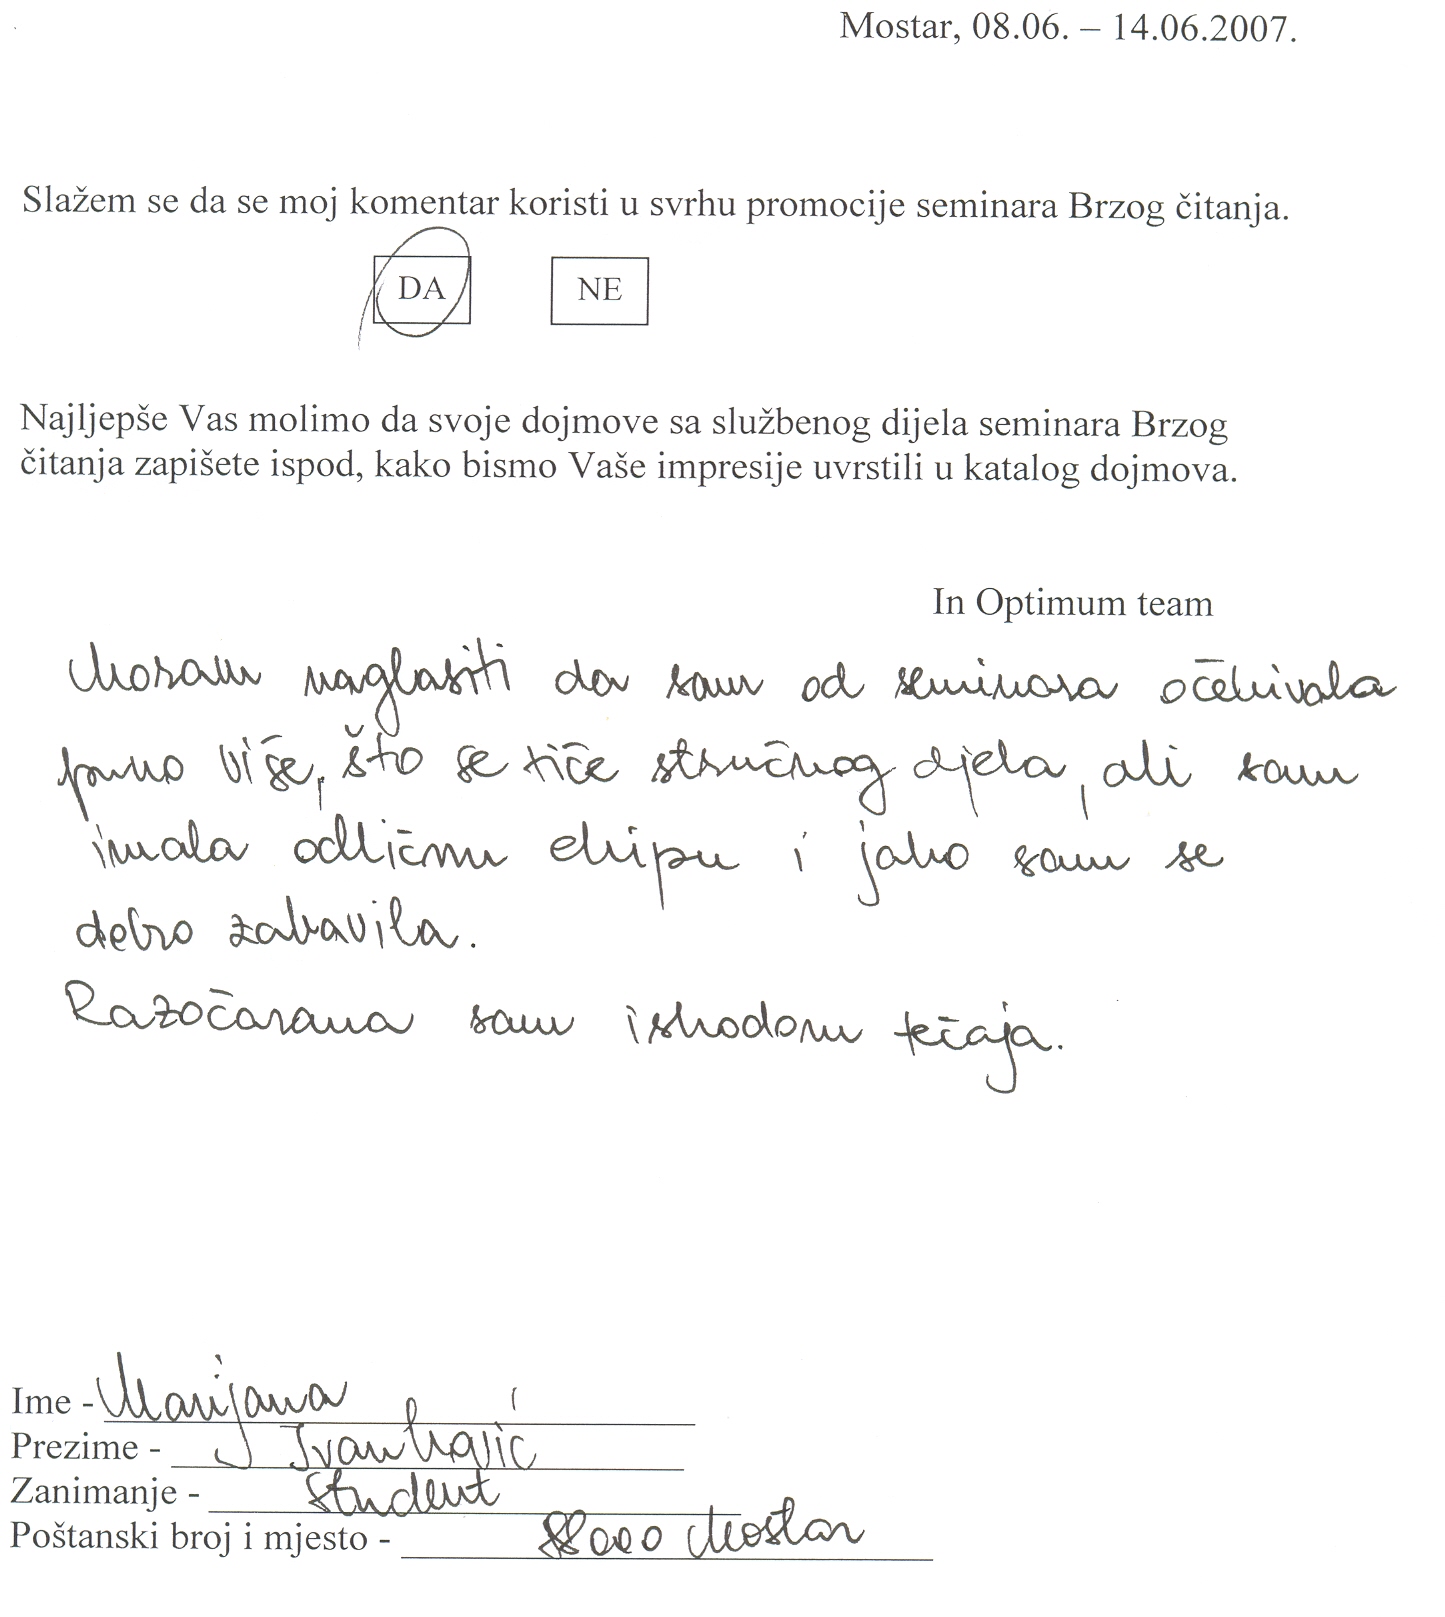 Mostar, 08.06. – 14.06.2007.
Slažem se da se moj komentar koristi u svrhu promocije seminara Brzog čitanja.
DA NE
Najljepše Vas molimo da svoje dojmove sa službenog dijela seminara Brzog
čitanja zapišete ispod, kako bismo Vaše impresije uvrstili u katalog dojmova.
In Optimum team
Moram naglasiti da sam od seminara očekivala
puno više, što se tiče stručnog djela, ali sam
imala odličnu ekipu i jako sam se
dobro zabavila.
Razočarana sam ishodom tečaja.
Ime - Marijana
Prezime - Ivanković
Zanimanje - student
Poštanski broj i mjesto - 88000 Mostar